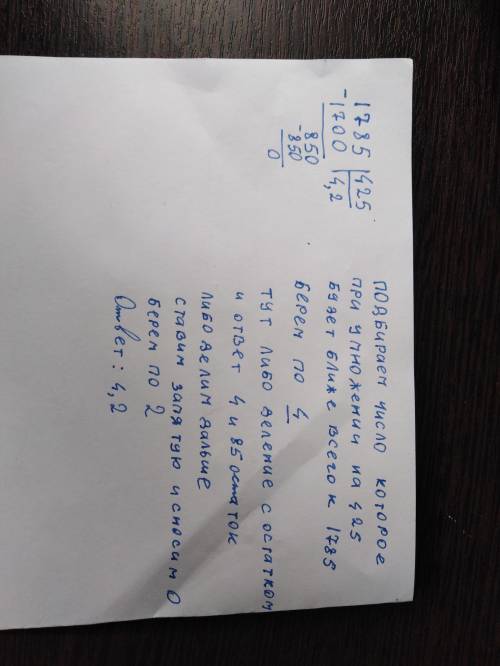 1785 |425
-1700 4,2
850
-850
0
подбираем число которое
при умножении на 425
будет ближе всего к 1785
Берем по 4
тут либо деление с остатком
и ответ 4 и 85 остаток
либо делим дальше
ставим запятую и сносим 0
Берем по 2
Ответ: 4,2